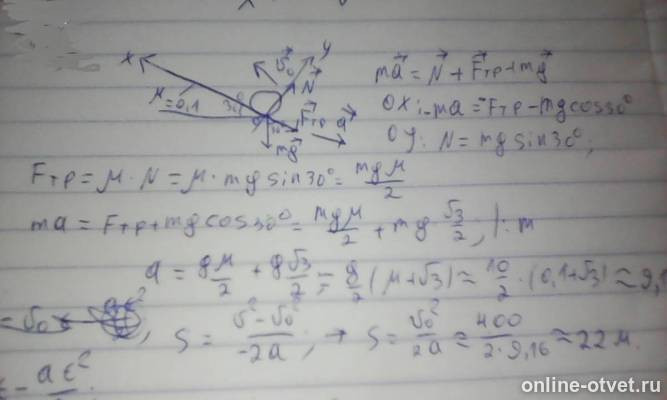 x
y
v⃗₀
N⃗
μ=0,1
30°
F⃗тр a⃗
30
mg⃗
ma⃗ = N⃗ + F⃗тр + mg⃗
OX: -ma = -Fтр - mg cos30°
OY: N = mg sin30°;
Fтр = μ · N = μ · mg sin30° = mgμ/2
ma = Fтр + mg cos30° = mgμ/2 + mg √3/2, |: m
a = gμ/2 + g√3/2 = g/2 (μ+√3) ≈ 10/2 · (0,1+√3) ≈ 9,1
= v₀
, S = (v² - v₀²)/(-2a); → S = v₀²/2a ≈ 400/(2·9,16) ≈ 22 м.
- at²
online-otvet.ru